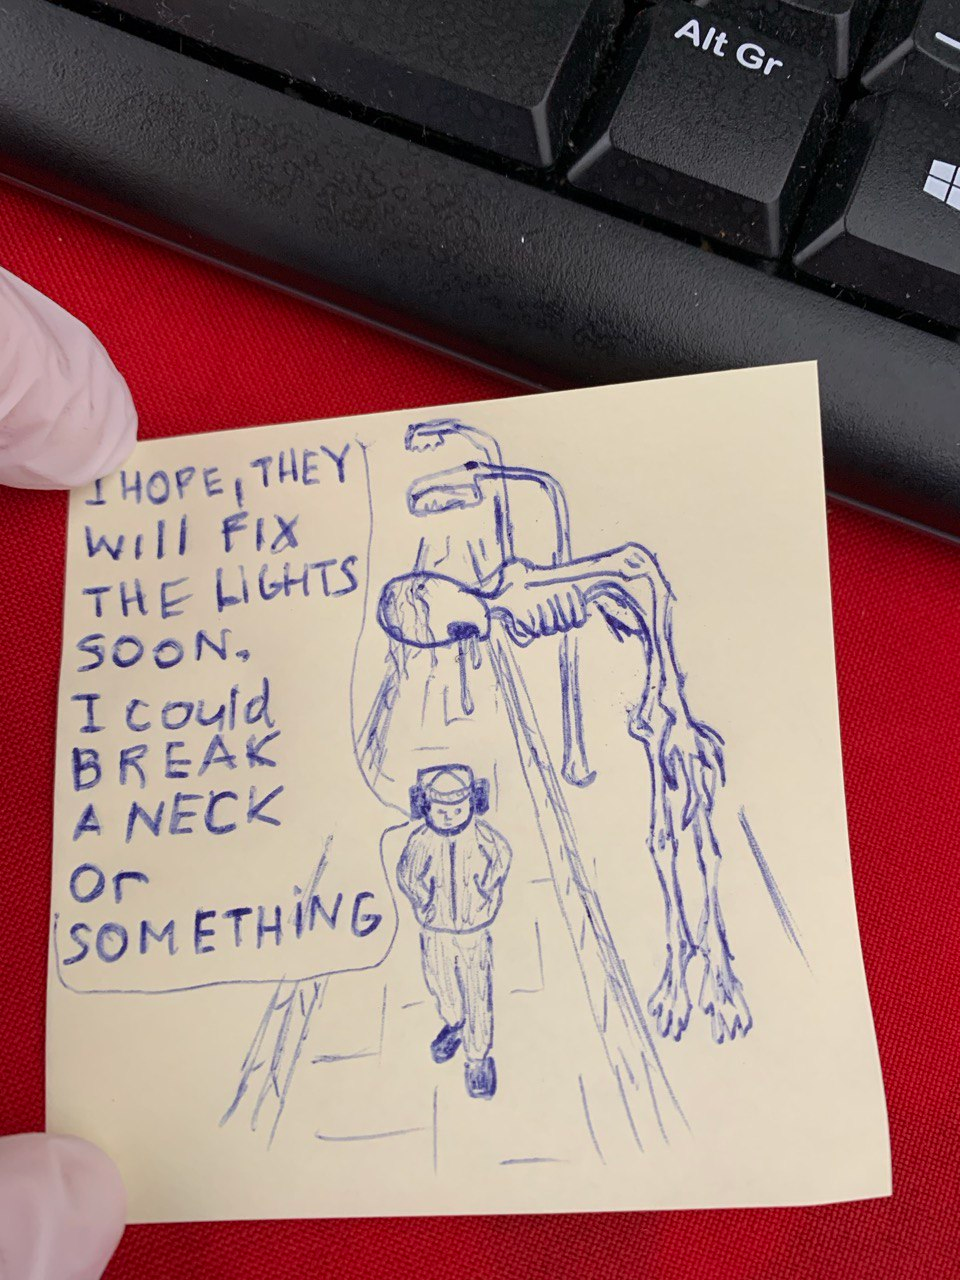 Alt Gr
I HOPE, THEY
Will FIX
THE LIGHTS
SOON.
I could
BREAK
A NECK
Or
SOMETHING